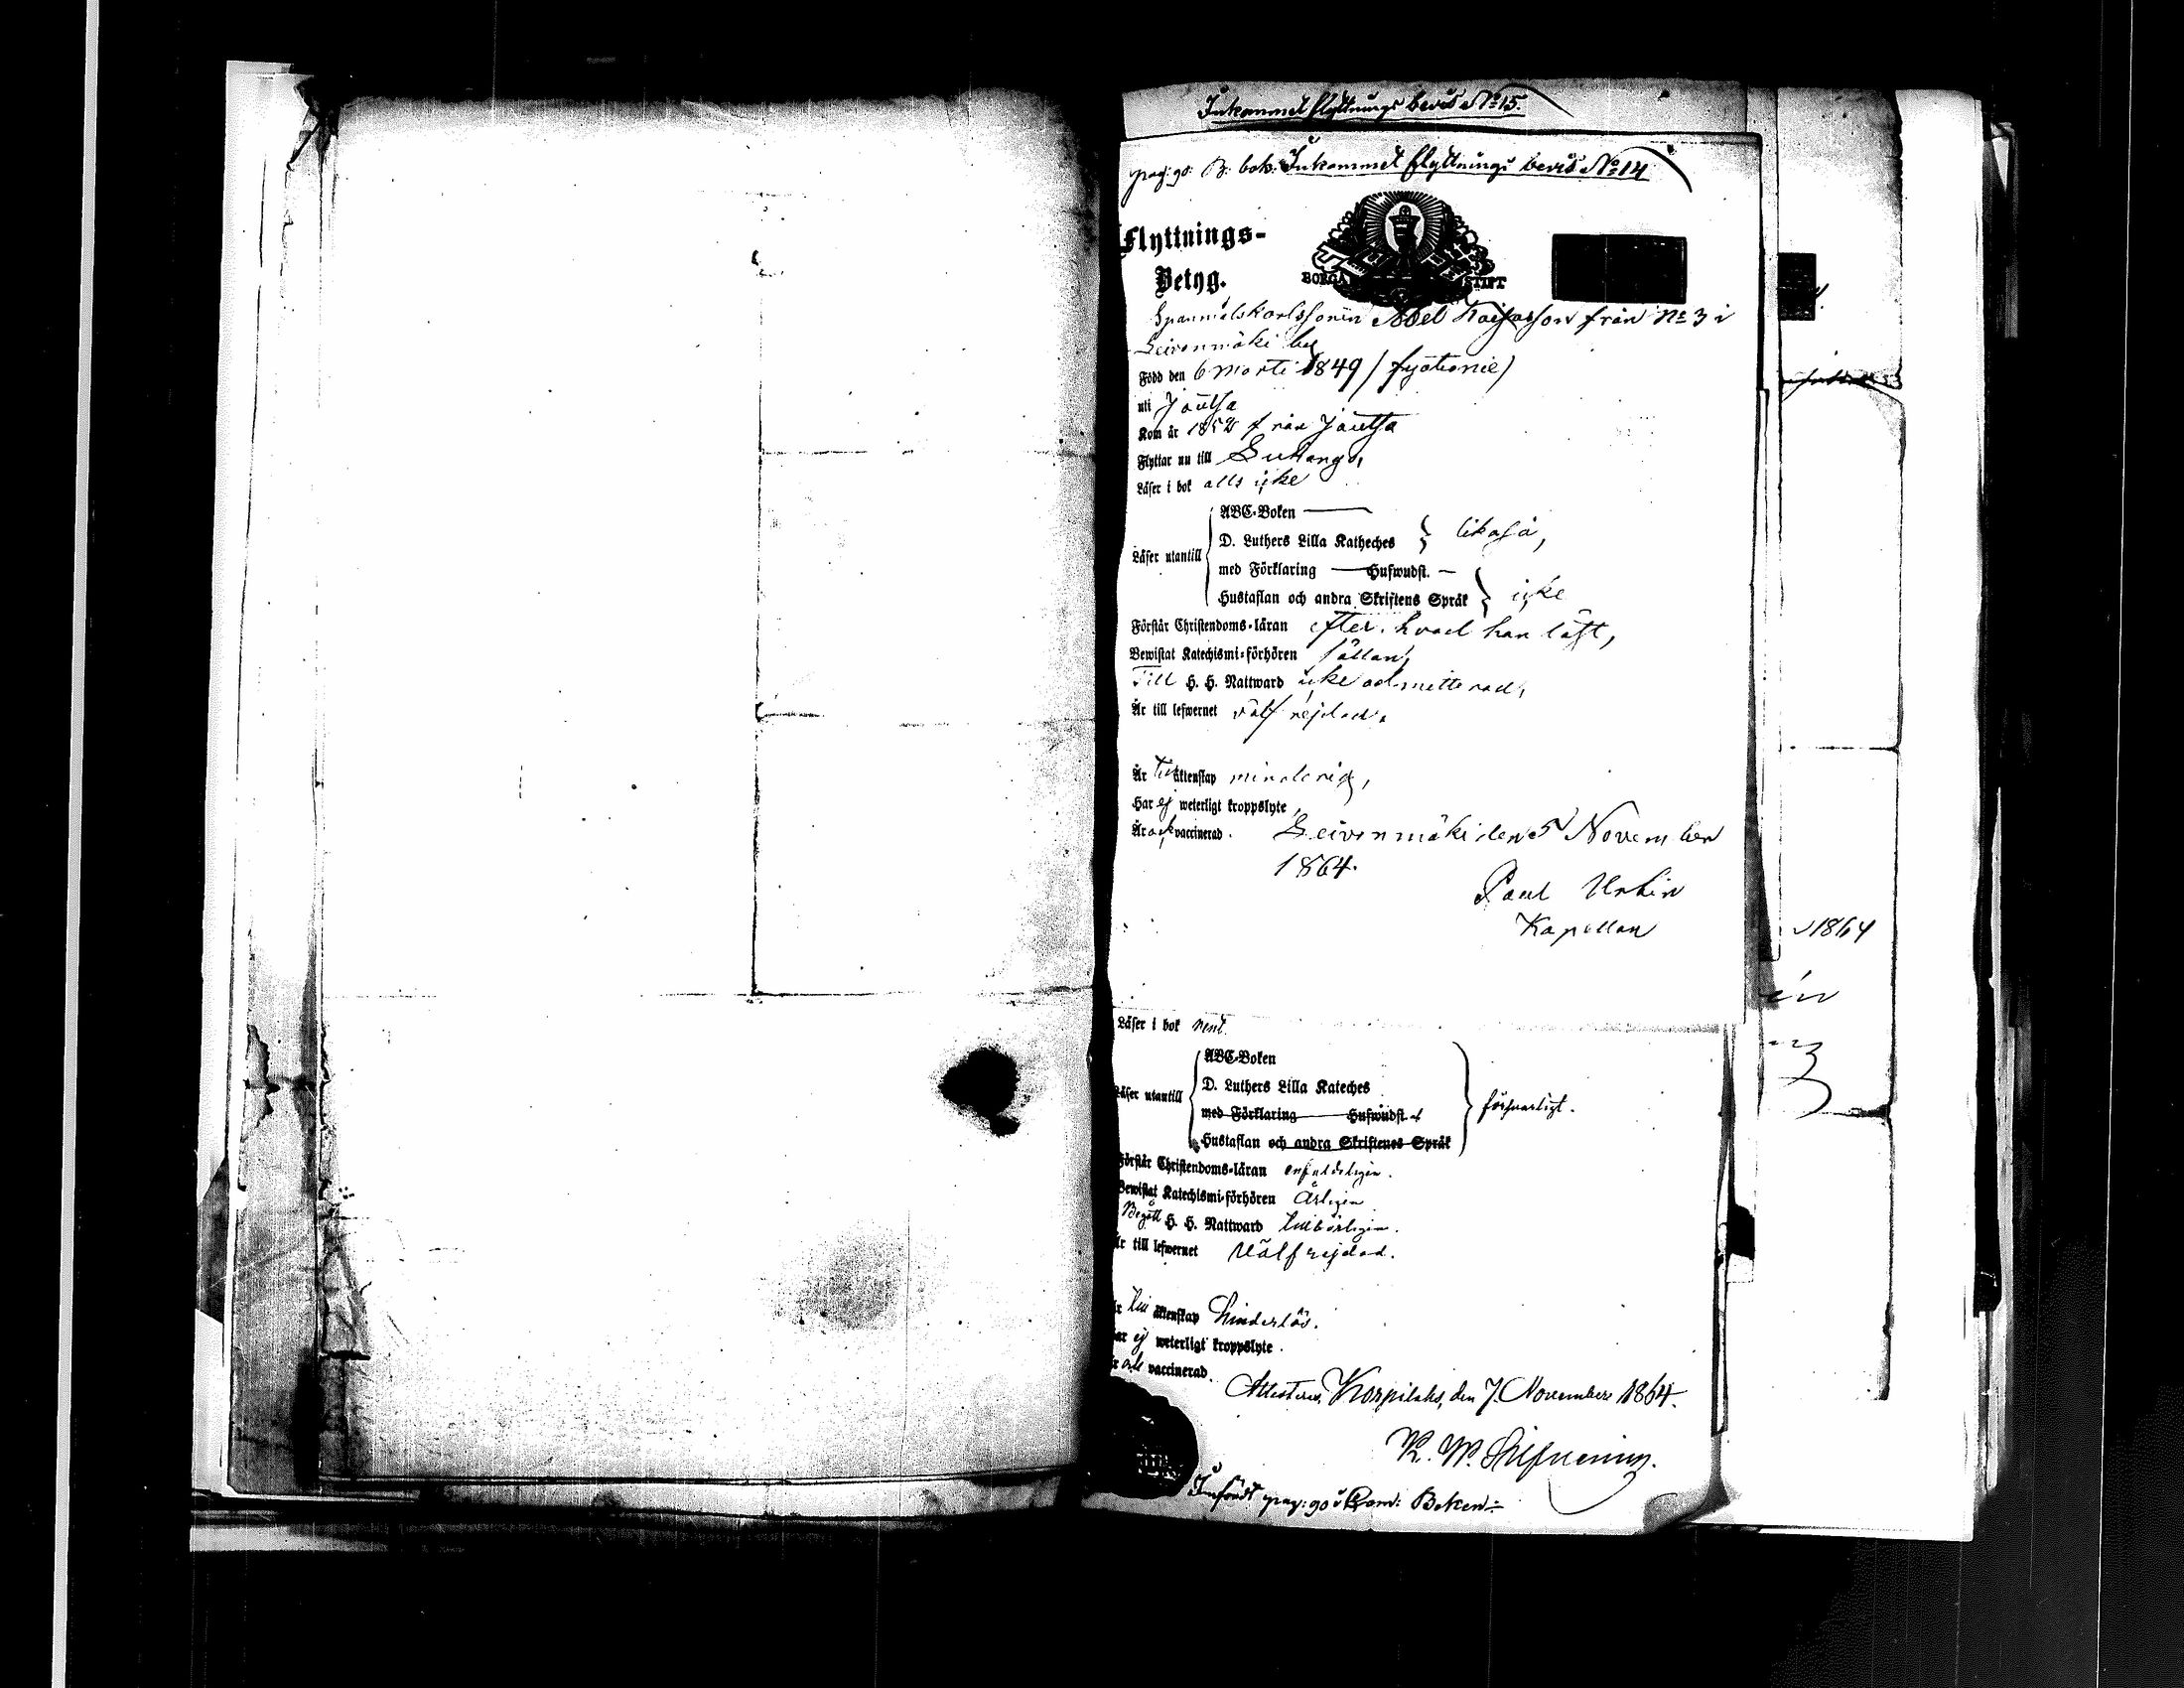 Inkommet flyttnings bevis No 15.
pag: 90: B: bok: Inkommet flyttnings bevis No 14
Flyttnings-
Betyg.
BORGÅ STIFT
Spanmålskarlssonen Abel från No 3 i
Leivonmäki by
Född den 6 Marti 1849 /
uti Joutsa
Kom år 1852 från Joutsa
Flyttar nu till Luhango,
Läser i bok alls icke
ABC-Boken
D. Luthers Lilla Katheches } likaså,
Läser utantill
med Förklaring Hufwudst.
Hustaflan och andra Skriftens Språk } icke
Förstår Christendoms-läran efter hvad han läst,
Bewistat Katechismi-förhören sällan,
Till H. H. Nattward icke admitterad,
Är till lefwernet välfrejdad.
Är till äktenskap minderårig,
Har ej weterligt kroppslyte,
Är ock vaccinerad. Leivonmäki den 5 November
1864.
Paul Urhin
Kapellan
1864
Läser i bok rent.
ABC-Boken
D. Luthers Lilla Kateches
Läser utantill
med Förklaring Hufwudst. } försvarligt.
Hustaflan och andra Skriftenes Språk
Förstår Christendoms-läran enfaldeligen.
Bewistat Katechismi-förhören Årligen
Begått H. H. Nattward tillbörligen.
Är till lefwernet Välfrejdad.
Är till äktenskap hinderlös.
Har ej weterligt kroppslyte.
Är ock vaccinerad.
Attesteras, Korpilaks, den 7 November 1864.
K. W.
Infördt pag: 90 i Kom: Boken